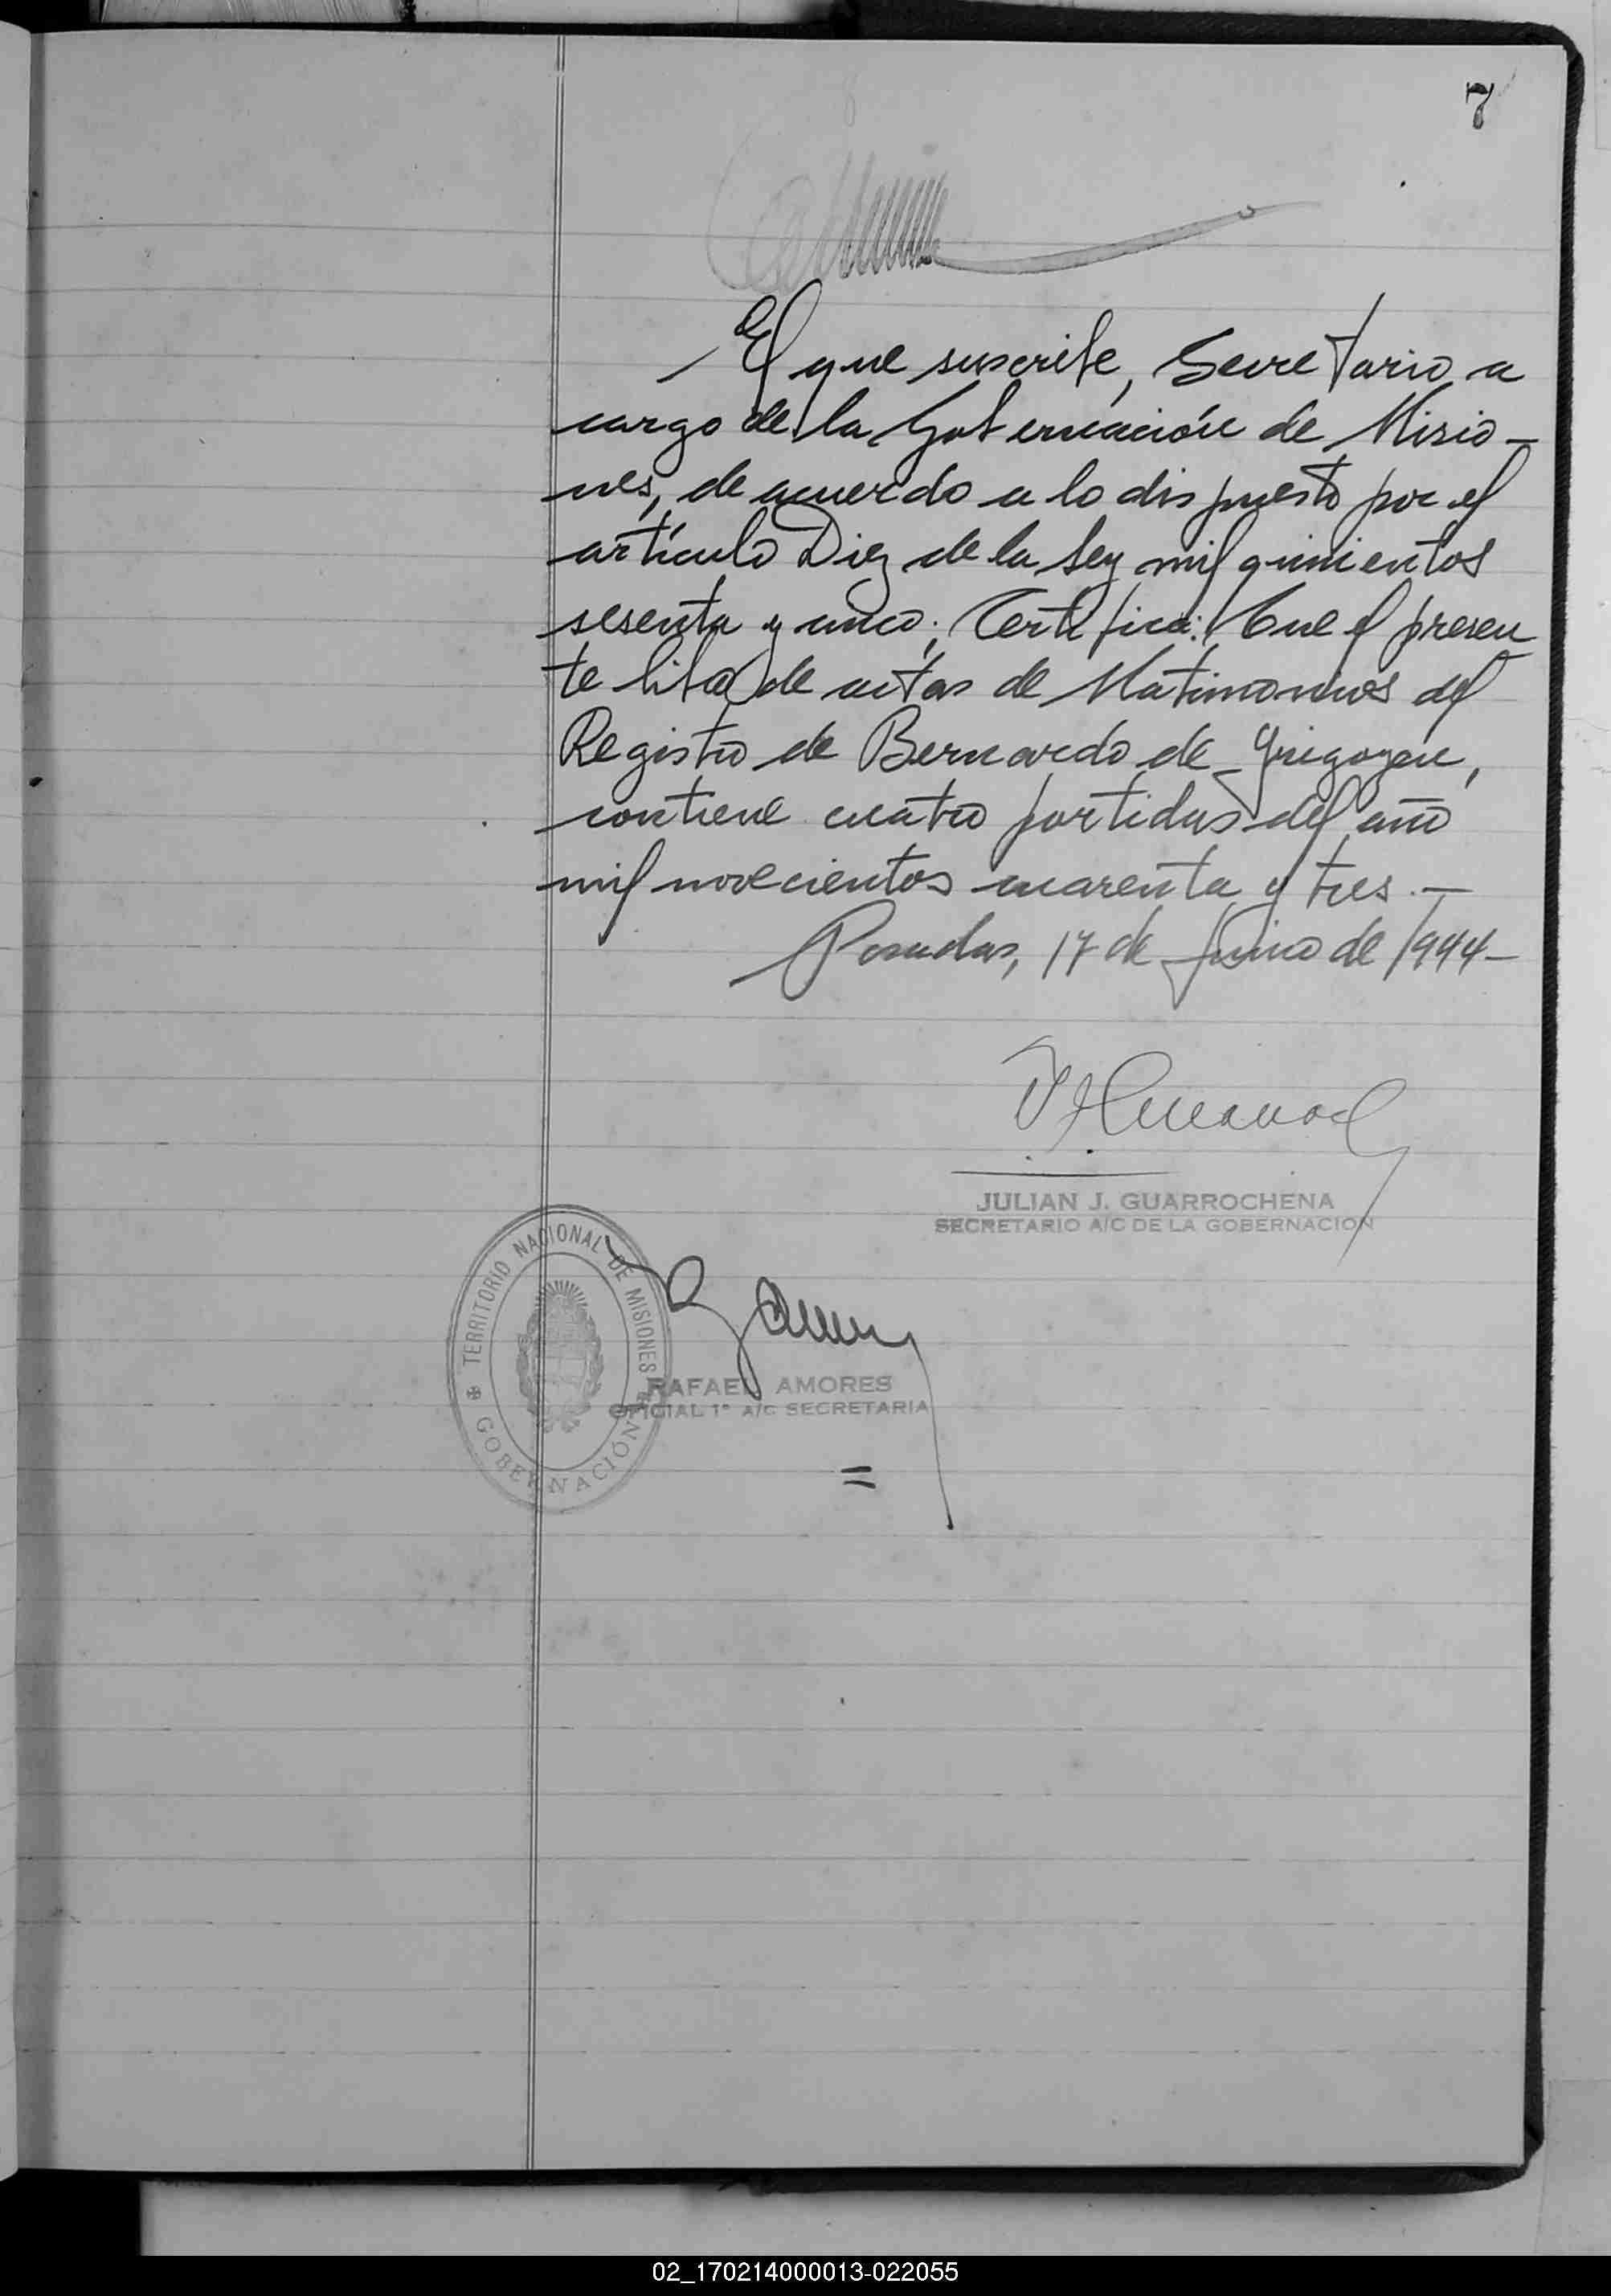 7
El que suscribe, Secretario a
cargo de la Gobernación de Misio-
nes, de acuerdo a lo dispuesto por el
artículo Diez de la Ley mil quinientos
sesenta y cinco; Certifica: Que el presen
te libro de actas de Matimonios del
Registro de Bernardo de Yrigoyen,
contiene cuatro partidas del año
mil novecientos cuarenta y tres.-
Posadas, 17 de Junio de 1944-
JULIAN J. GUARROCHENA
SECRETARIO A/C DE LA GOBERNACION
TERRITORIO NACIONAL DE MISIONES
GOBERNACIÓN
RAFAEL AMORES
OFICIAL 1° A/C SECRETARIA
=
02_170214000013-022055